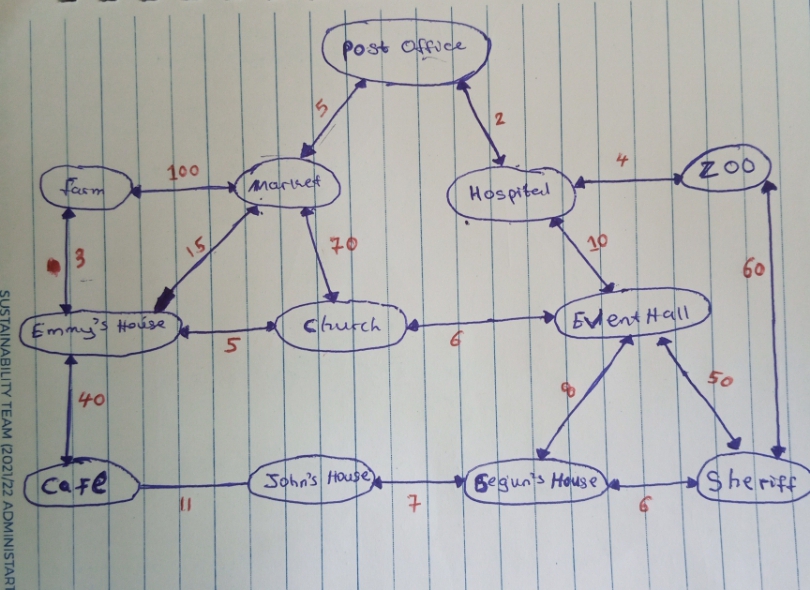 Post Office
5
2
farm
100
Market
Hospital
4
ZOO
3
15
70
10
60
Emmy's House
5
Church
6
Event Hall
40
8
50
Cafe
11
John's House
7
Segun's House
6
Sheriff
SUSTAINABILITY TEAM (2021/22 ADMINISTRAT